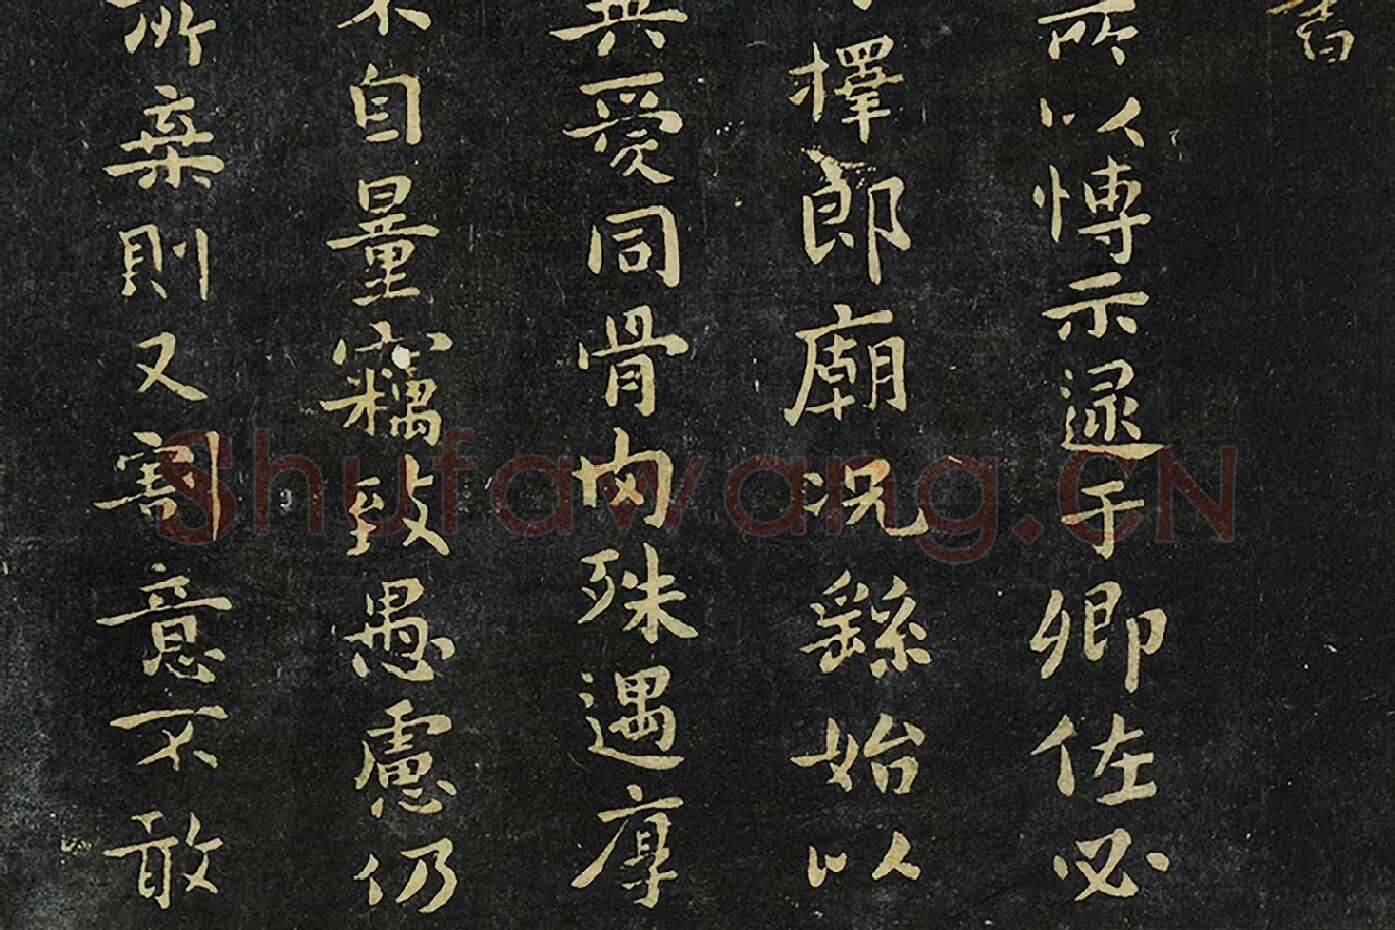 書
所以博示逮于卿佐必
擇郎廟況繇始以
與愛同骨肉殊遇厚
不自量竊致愚慮仍
所棄則又割意不敢
Shufawang.CN